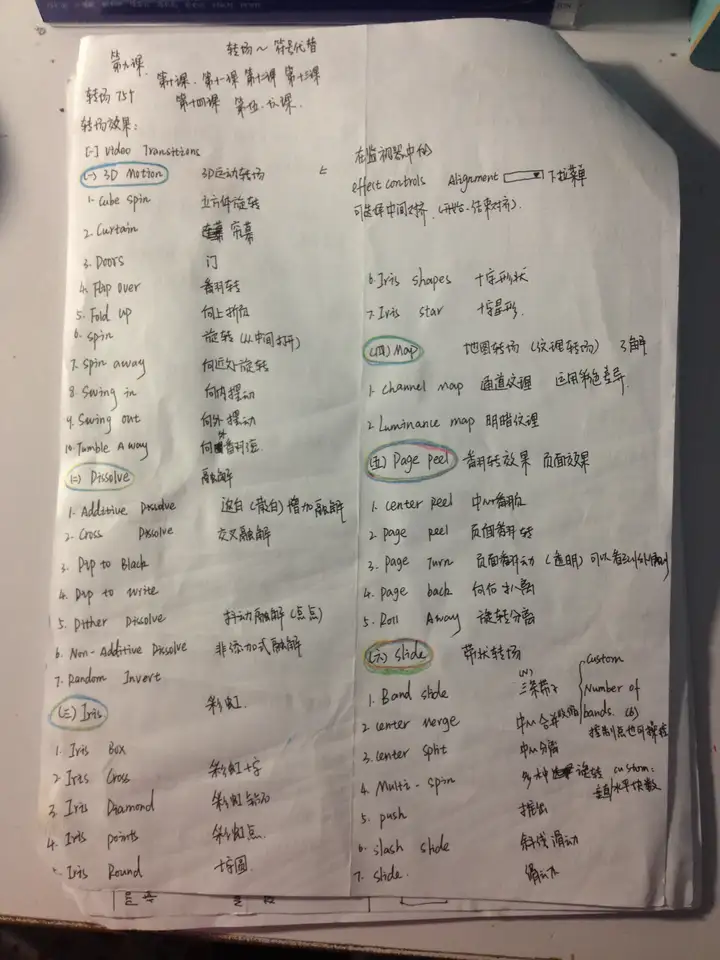 第九课. 转场~ 符号代替
第十课. 第十一课 第十二课 第十三课
转场 75个 第十四课
转场效果:
[-] Video Transitions
(一) 3D Motion 3D运动转场
1. Cube Spin 立方体旋转
2. Curtain 窗幕
3. Doors 门
4. Flap over 翻转
5. Fold up 向上折叠
6. Spin 旋转 (从中间打开)
7. Spin away 向远处旋转
8. Swing in 向内摆动
9. Swing out 向外摆动
10. Tumble Away 向外翻
(二) Dissolve 融解
1. Additive Dissolve 增加融解
2. Cross Dissolve 交叉融解
3. Dip to Black
4. Dip to write
5. Dither Dissolve 抖动融解 (点点)
6. Non-Additive Dissolve 非添加式融解
7. Random Invert
(三) Iris 彩虹.
1. Iris Box
2. Iris Cross 彩虹十字
3. Iris Diamond 彩虹钻石
4. Iris points 彩虹点.
Iris Round 十字圆.
在监视器中的
effect controls Alignment 下拉菜单
可选择中间对齐. (开始、结束对齐).
6. Iris shapes 十字形状
7. Iris star 十字星形.
(四) Map 地图转场 (纹理转场) 了解
1. Channel map 通道纹理 运用彩色差异.
2. Luminance map 明暗纹理
(五) Page Peel 翻转效果 页面效果
1. Center Peel 中心翻页
2. Page Peel 页面翻转
3. Page Turn 页面翻动 (透明) 可以看到
4. Page back 向后
5. Roll Away 旋转分离
(六) Slide 带状转场
1. Band slide 三条带子 (N)
Custom
Number of
bands. (6)
控制点也可操控
2. Center Merge 中心合并
3. Center Split 中心分离
4. Multi-Spin 多种旋转 Custom:
垂直/水平块数
5. push 推出
6. Slash Slide 斜线滑动
7. Slide. 滑动